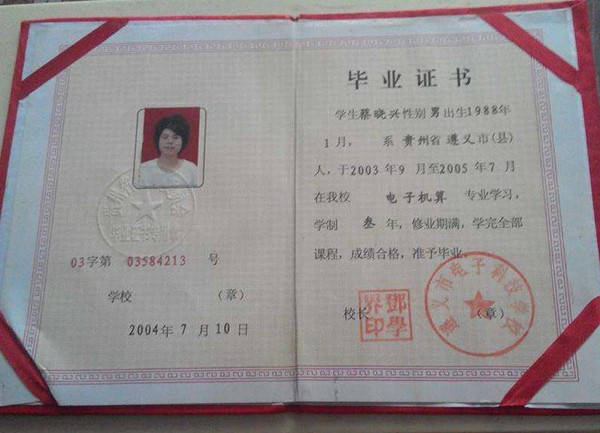 03字第 03584213 号
学校 (章)
2004年7月10日
毕业证书
学生蔡晓兴性别男出生1988年
1月, 系 贵州省遵义市(县)
人,于2003年9月至2005年7月
在我校 电子机算 专业学习,
学制 叁 年,修业期满,学完全部
课程,成绩合格,准予毕业。
校长 (章)
遵义市电子科技学校